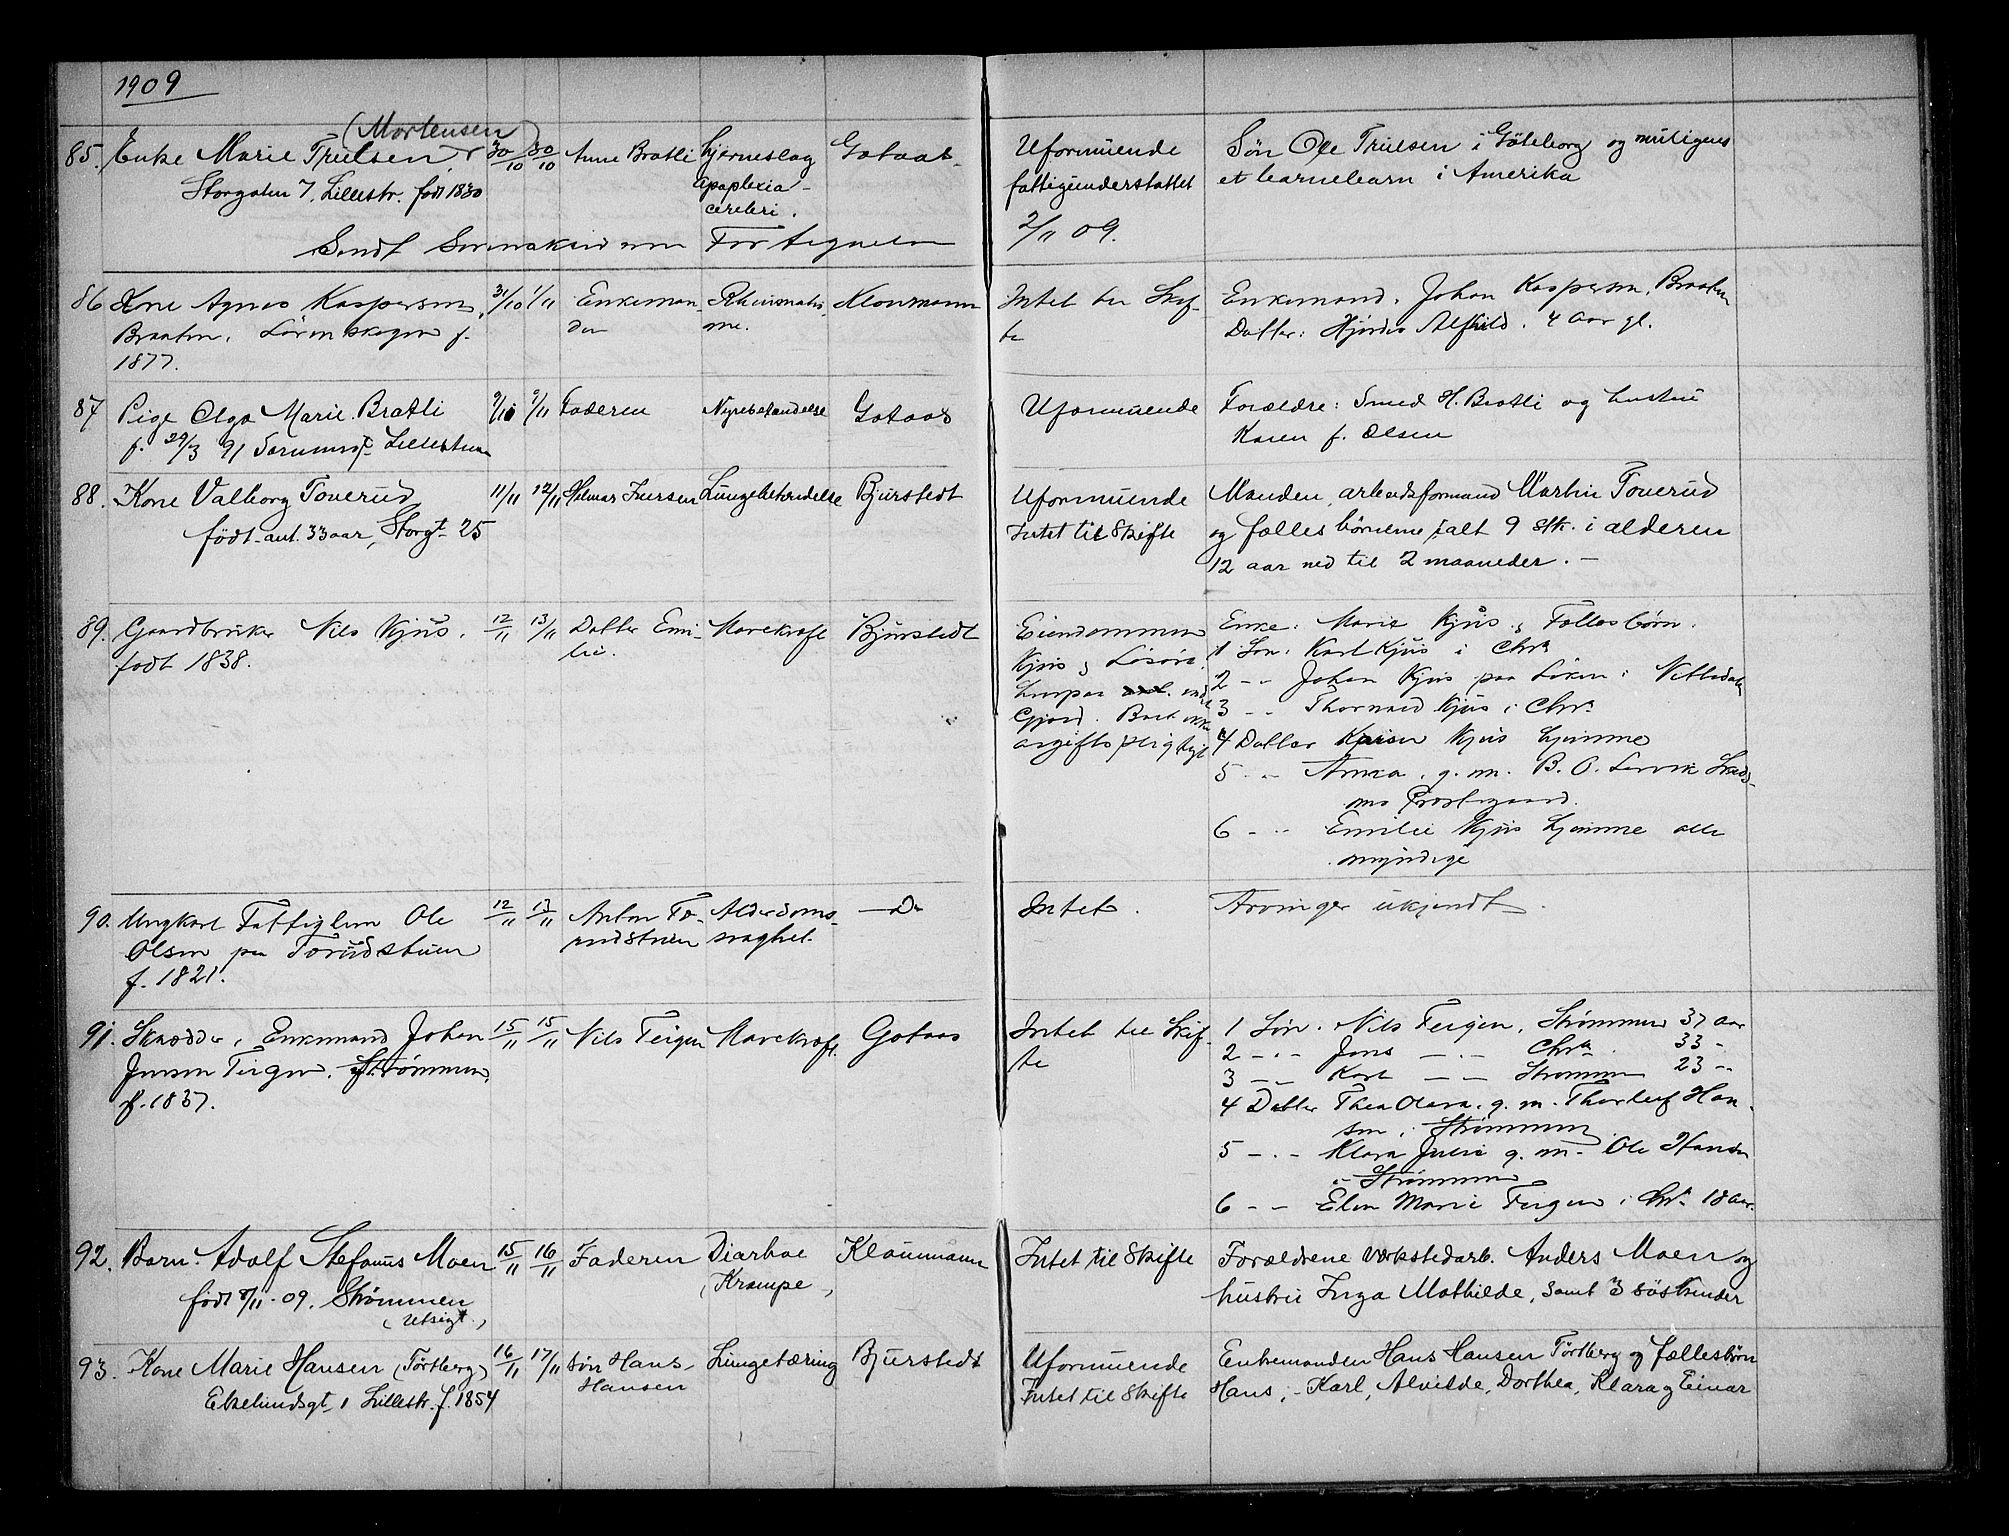 1909
(Mortensen)
85. Enke Marie Trulsen, 30/10 30/10 Anne Bratli hjerneslag Gotaas Uformuende Søn Ole Trulsen i Göteborg og muligens
Storgaten 7, Lillestr. født 1830 apoplexia fattigunderstøttet et barnebarn i Amerika
cerebri. 2/11 09.
Sendt Sorenskriveren Fortegnelse
86 Kone Agnes Kaspersen, 31/10 1/11 Enkeman- Rheumatis- Klouman Intet til Skif- Enkemand, Johan Kaspersen, Braaten
Braaten, Lörenskogen f. den me. te Datter: Hjördis Alfhild. 4 Aar gl.
1877.
87 Pige Olga Marie Bratli 9/10 9/11 Faderen Nyrebetændelse Gotaas Uformuende Forældre: Smed H. Bratli og hustru
f. 29/3 91 Lillestrøm Karen f. Olsen
88. Kone Valborg Toverud 11/11 12/11 Helmar Iversen Lungebetændelse Bjurstedt Uformuende Manden, arbeidsformand Martin Toverud
født ant. 33 aar, Storgt 25 Intet til Skifte og fælles børnene ialt 9 stk. i alderen
12 aar ned til 2 maaneder. –
89. Gaardbruker Nils Kjus. 12/11 13/11 Datter Emi- Marekraft Bjurstedt Eiendommen Enke: Marie Kjus. Fællesbørn.
født 1838. lie. Kjus og Løsøre. 1 Søn: Karl Kjus i Chr.a
2 – – Johan Kjus paa Løken i Nittedal
Gjæld. Boet ikke 3 – – Thorvald Kjus i Chr.a
avgiftspligtigt 4 Datter Karen Kjus hjemme
5 – – Anna, g. m. B. O. Skeds-
mo Prestegaard.
6 – – Emilie Kjus hjemme alle
myndige
90. Ungkarl Fattiglem Ole 12/11 13/11 Anton To- Alderdoms- — Do Intet. Arvinger ukjendt.
Olsen paa Torudstuen rudstuen svaghet.
f. 1821.
91. Skrædder, Enkemand Johan 15/11 15/11 Nils Teigen Marekraft. Gotaas Intet til Skif- 1 Søn. Nils Teigen, Strømmen 37 Aar
Jensen Teigen. Strømmen. te 2 – – Jens – – Chr.a 33 –
f. 1837. 3 – – Karl – – Strømmen 23 –
4 Datter Thea Olava, g. m. Thorleif Han-
sen, Strømmen.
5 – – Klara Julie g. m. Ole Hansen
– Strømmen
6 – – Elen Marie Teigen i Chr.a 18 Aar.
92. Barn. Adolf Stefanus Moen 15/11 16/11 Faderen Diarhoe Kloumann Intet til Skifte Forældrene Værkstedarb. Anders Moen og
født 8/11 - 09. Strømmen (Krampe) hustru Inga Mathilde, samt 3 søskender
(Utsigt.)
93. Kone Marie Hansen (Törtberg) 16/11 17/11 Søn Hans Lungetæring Bjurstedt Uformuende Enkemanden Hans Hansen Törtberg og fællesbörn
Ekelundsgt. 1 Lillestr. f. 1854 Hansen Intet til Skifte Hans, – Karl, Alvilde, Dorthea, Klara og Einar